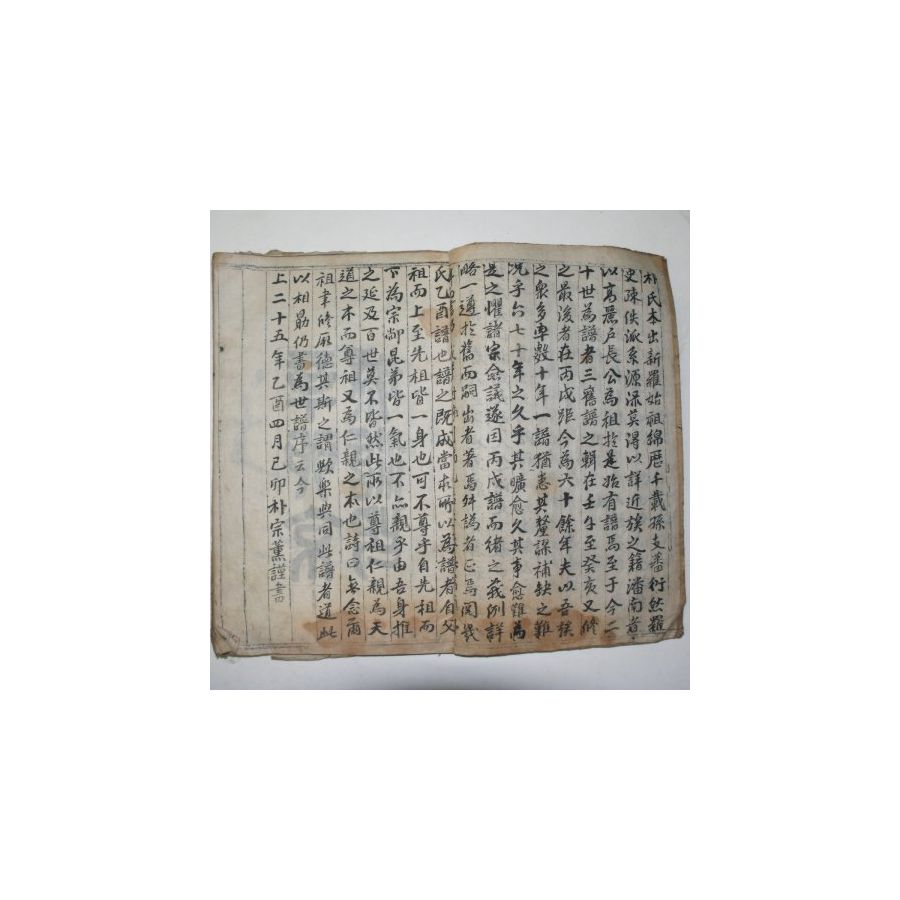 朴氏本出新羅始祖綿歷千載孫支蕃衍然羅
史疎佚派系源流莫得以詳近族之籍潘南者
以高麗戶長公為祖於是始有譜焉至于今二
十世為譜者三舊譜之輯在壬午至癸亥又修
之最後者在丙戌距今為六十餘年夫以吾族
之衆多率數十年一譜猶患其釐謬補缺之難
况乎六七十年之久乎其曠愈久其事愈難為
是之懼諸宗僉議遂因丙戌譜而緖之義例詳
略一遵於舊而嗣出者著焉舛譌者正焉閱幾
氏乙酉譜也譜之既成當求所以為譜者自父
祖而上至先祖皆一身也可不尊乎自先祖而
下為宗鄰昆弟皆一氣也不亦親乎由吾身推
之延及百世莫不皆然此所以尊祖仁親為天
道之本而尊祖又為仁親之本也詩曰無念爾
祖聿修厥德其斯之謂歟樂與同此譜者道此
以相勗仍書為世譜序云今
上二十五年乙酉四月己卯朴宗薰謹書